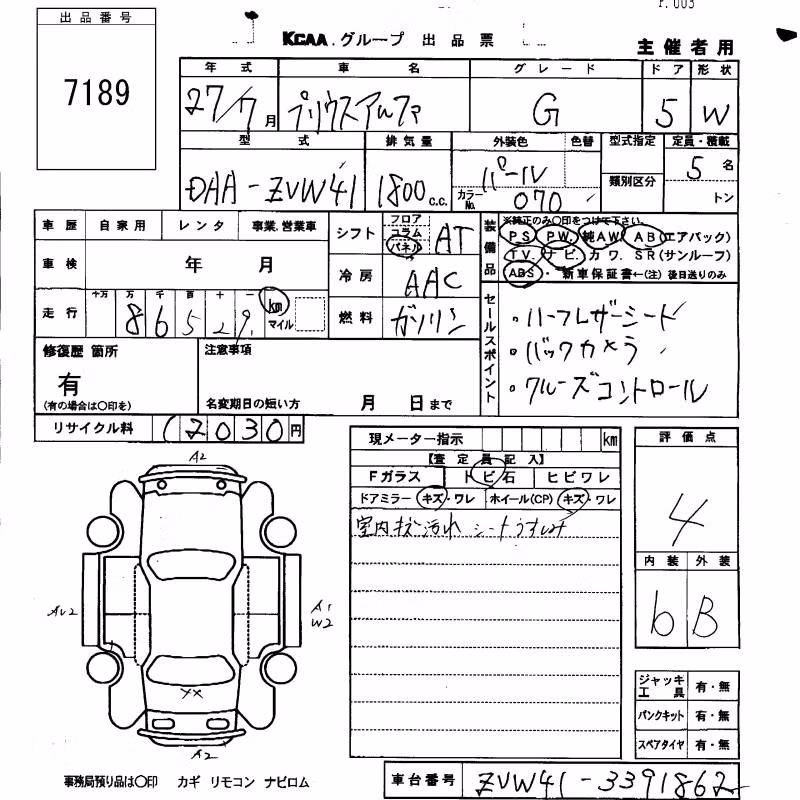 出品番号
7189
KCAA.グループ 出品票
主催者用
年式 車名 グレード ドア 形状
27/7月 プリウスアルファ G 5 W
型式 排気量 外装色 色替 型式指定 定員・積載
DAA-ZVW41 1800c.c. パール 5名
カラーNo. 070 類別区分 トン
車歴 自家用 レンタ 事業.営業車
シフト フロア コラム パネル AT
装備品 ※純正のみ〇印をつけて下さい。
PS PW. 純AW. AB(エアバック)
TV. ナビ. カワ. SR(サンルーフ)
ABS・新車保証書←(注)後日送りのみ
車検 年 月
冷房 AAC
走行 十万 万 千 百 十 一 km マイル
86529
燃料 ガソリン
セールスポイント
・ハーフレザーシート
・バックカメラ
・クルーズコントロール
修復歴 箇所 注意事項
有
(有の場合は〇印を) 名変期日の短い方 月 日まで
リサイクル料 12030円
現メーター指示 km
【査定員記入】
Fガラス トビ石 ヒビワレ
ドアミラー キズ・ワレ ホイール(CP) キズ・ワレ
室内キズ汚れ シートうすしみ
評価点
4
内装 外装
b B
A2
AU2
A1
W2
XX
A2
ジャッキ工具 有・無
パンクキット 有・無
スペアタイヤ 有・無
事務局預り品は〇印 カギ リモコン ナビロム
車台番号 ZVW41-3391862